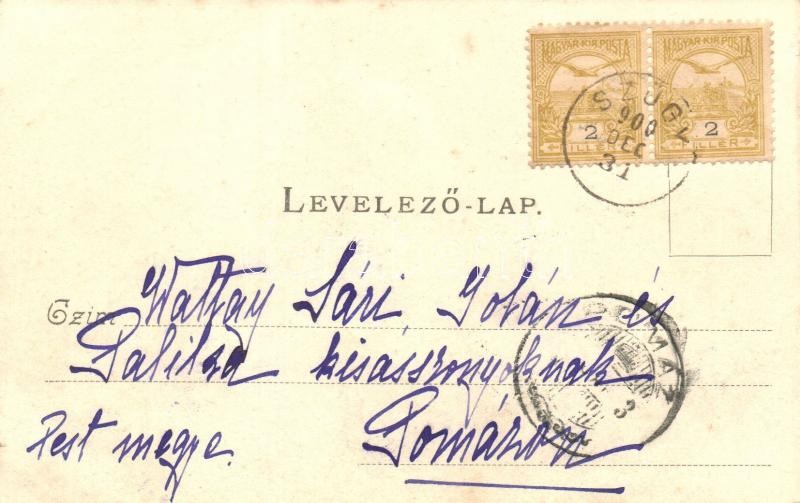 MAGYAR·KIR·POSTA MAGYAR·KIR·POSTA
2 2
FILLÉR FILLÉR
SZÜGY
900
DEC
31
LEVELEZŐ-LAP.
Czím
Wattay Sári, Jolán és
kisasszonyoknak
Pest megye. Pomázon
POMÁZ
3